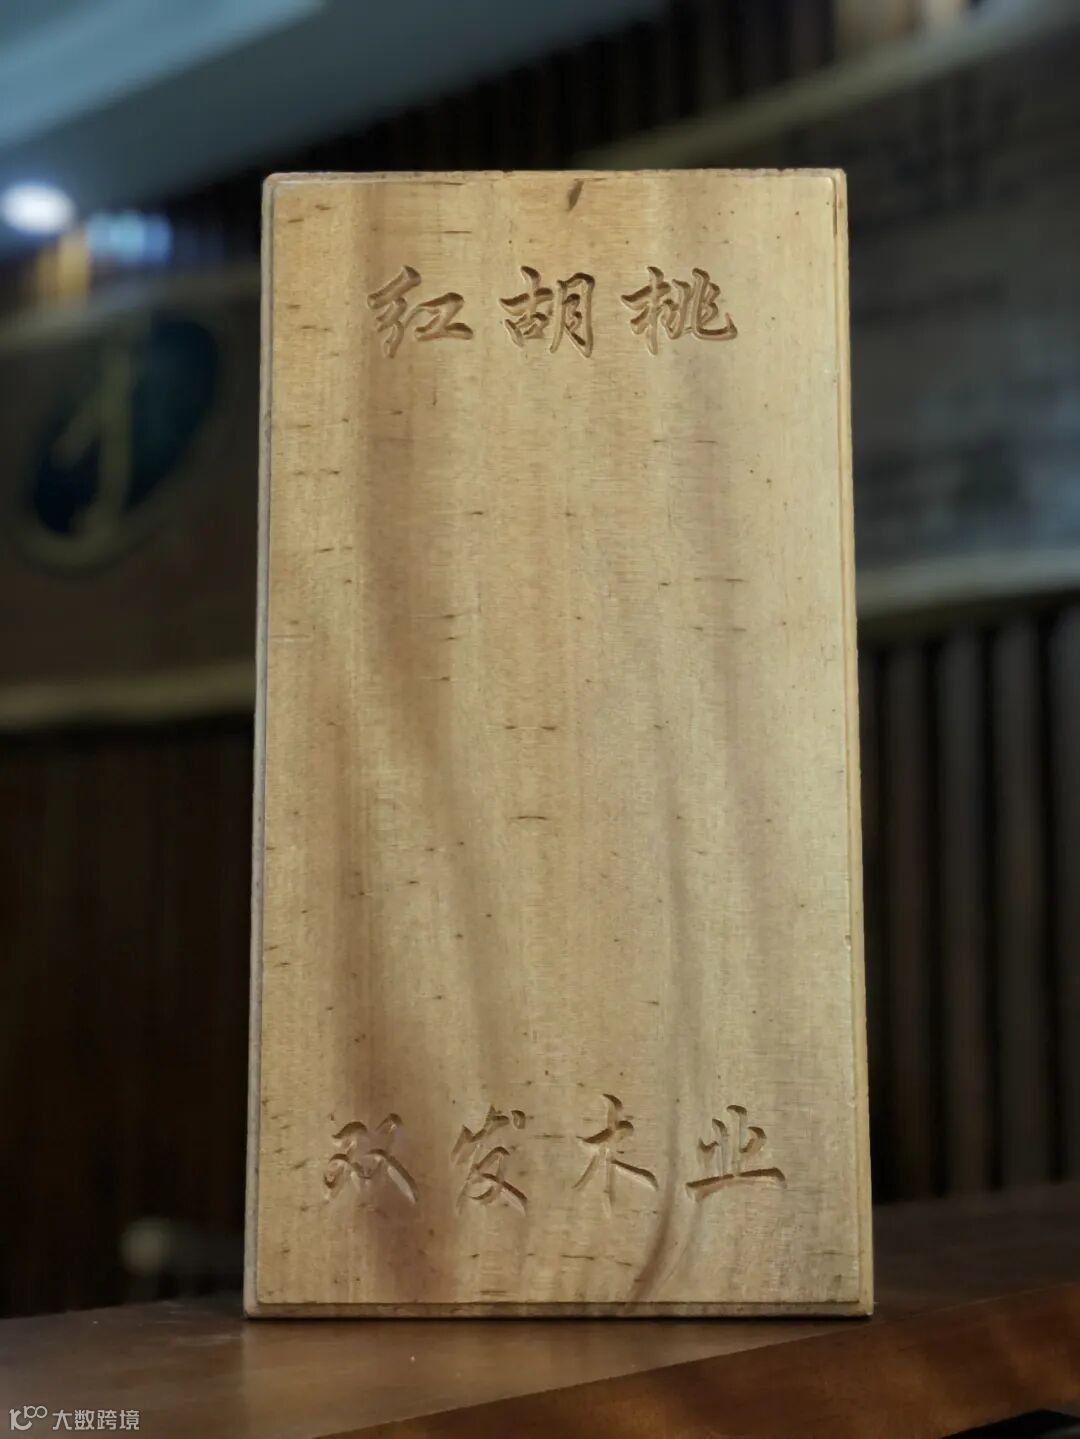 红胡桃
双发木业
大数跨境